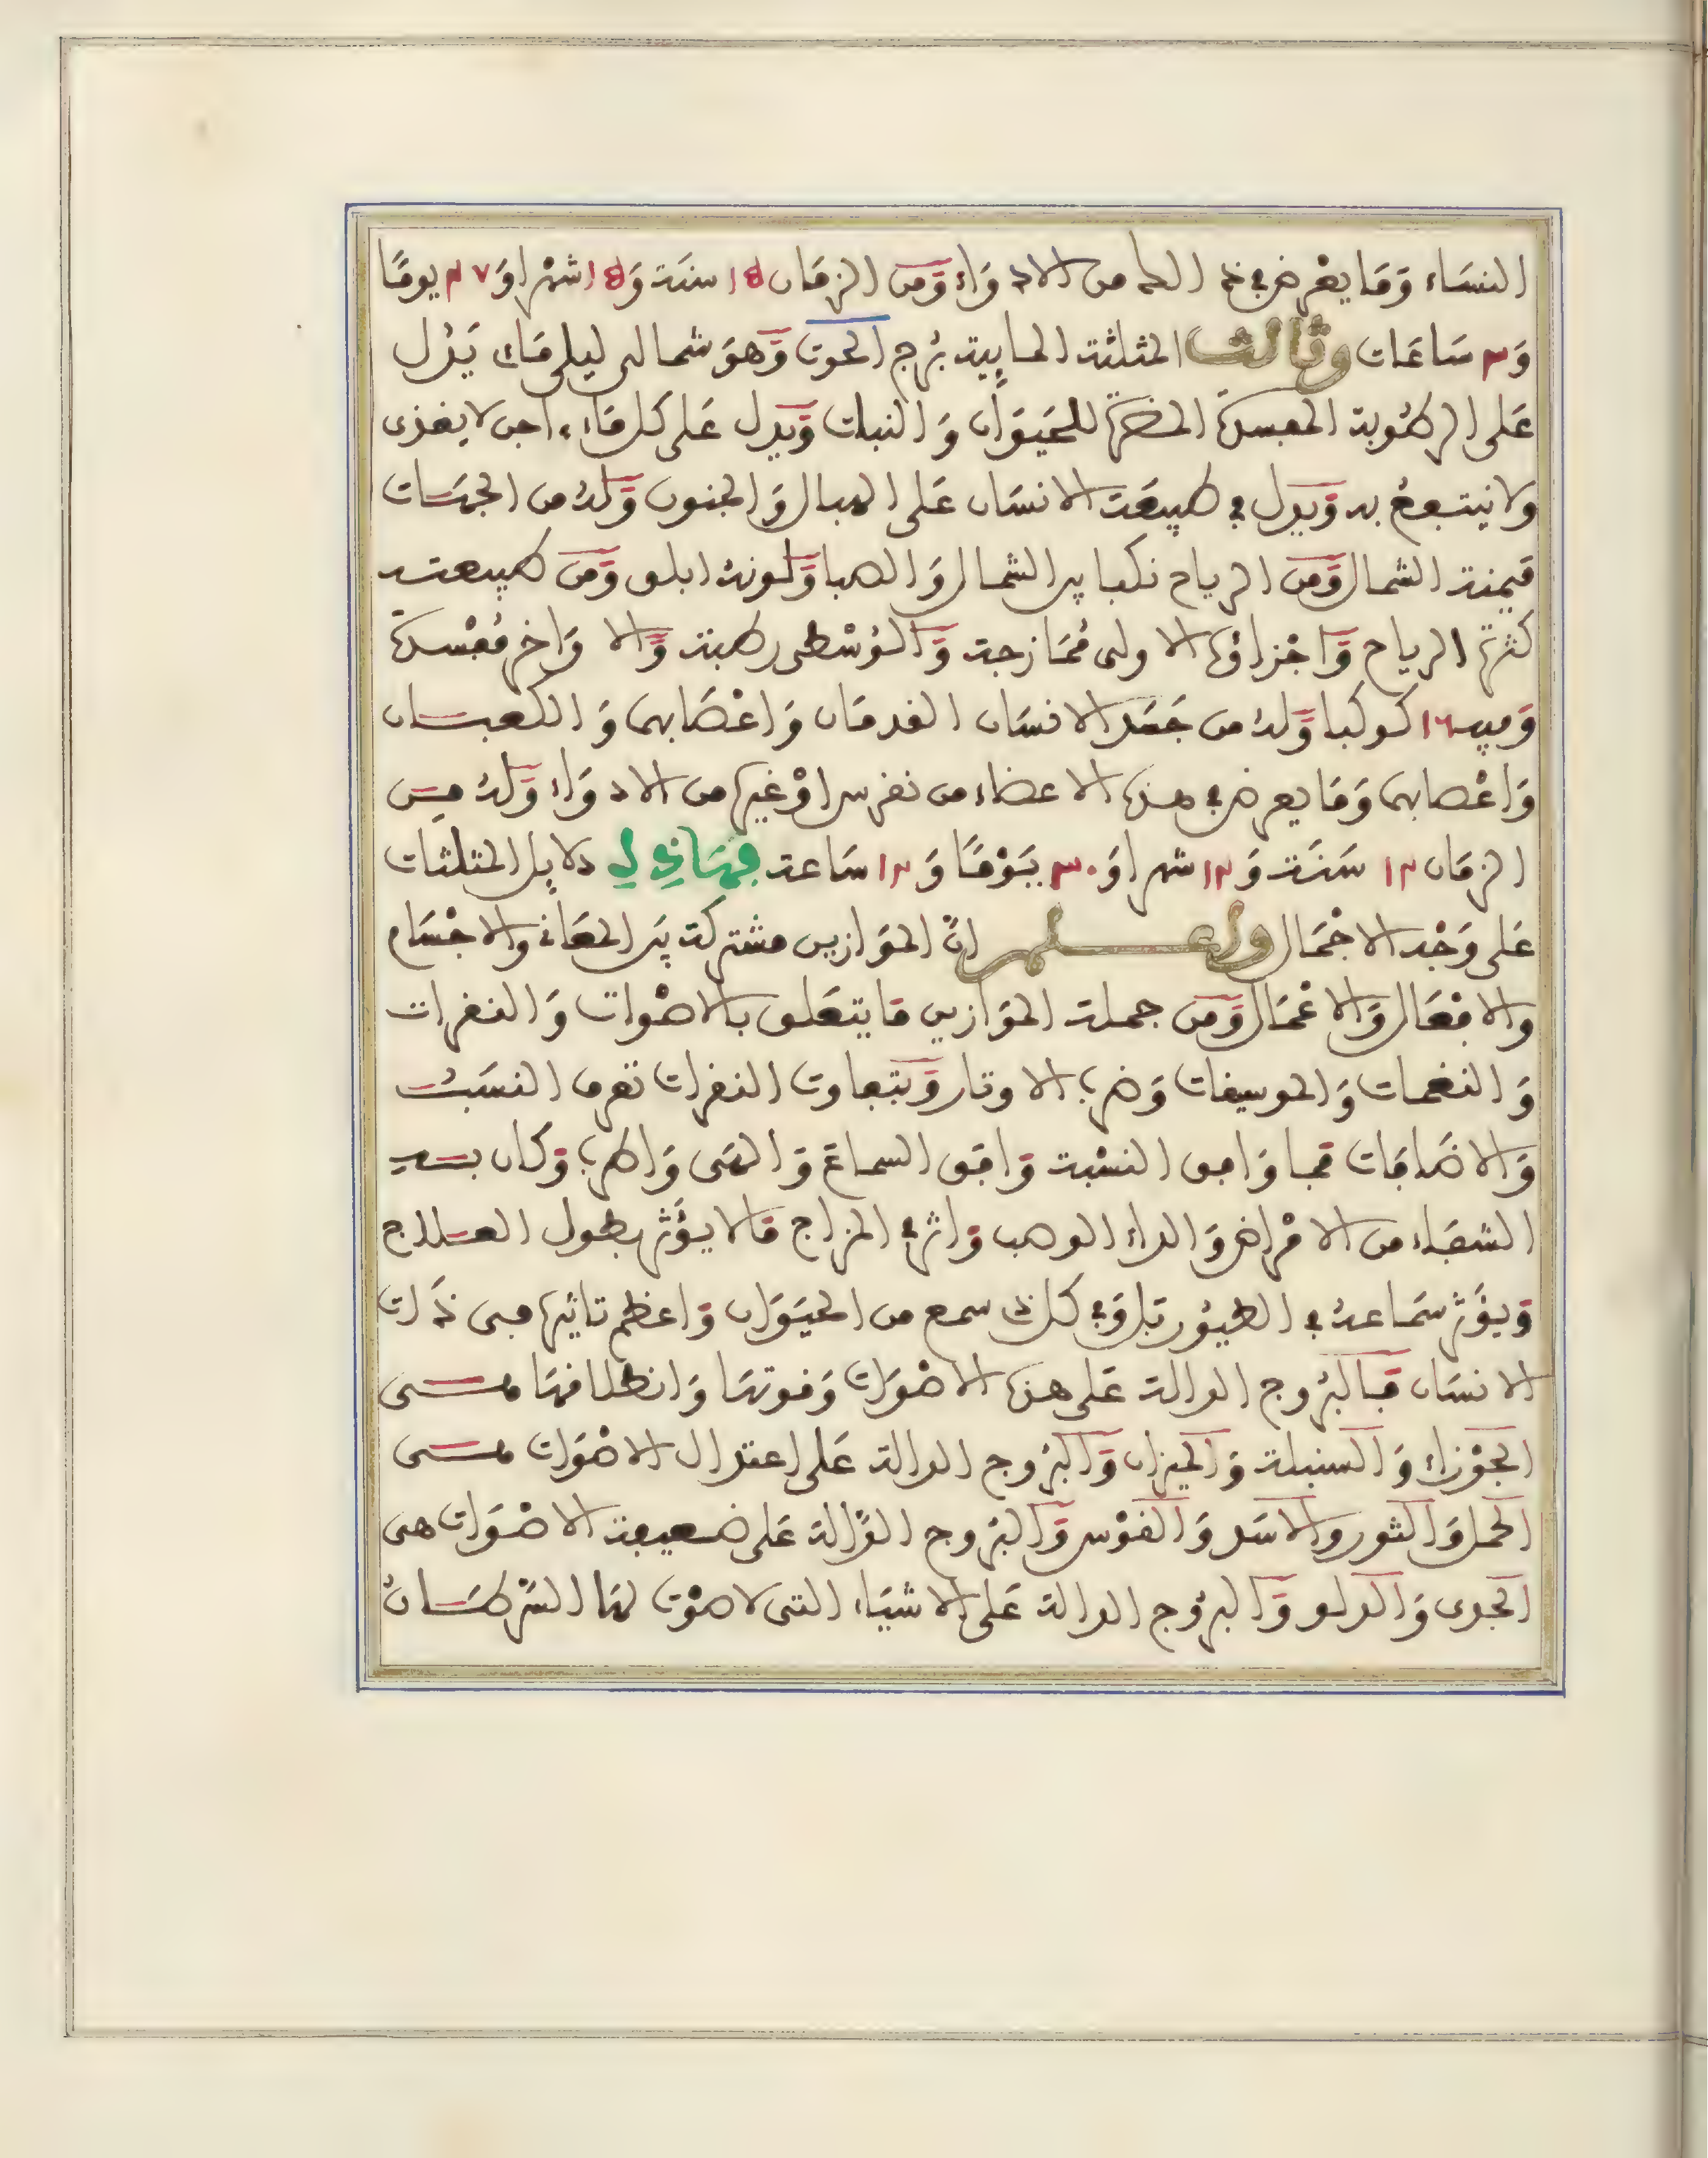 النساء وما يعرض في ذلك كله من الادواء ومن الزمان ١٥ سنة و١٥ شهرا و٢٧ يوما
و٣ ساعات وثالث المثلثة المايية برج الحوت وهو شمالي ليلي مائ يدل
على الرطوبة المفسدة المضرة للحيوان والنبات ويدل على كل ماء اجن لا يغذى
ولا ينتفع به ويدل في طبيعة الانسان على الهبال والجنون وله من الجهات
ميمنة الشمال ومن الرياح نكبا بين الشمال والصبا ولونه ابلق ومن طبيعته
كثرة الرياح واجزاؤه الاولى ممازجة والوسطى رطبة والاواخر مفسدة
وفيه ١٦ كوكبا وله من جسد الانسان القدمان واعصابهما والكعبان
واعصابهما وما يعرض في هذه الاعضاء من نقرس او غيره من الادواء وله من
الزمان ١٢ سنة و١٢ شهرا و٣٠ يوما و١٢ ساعة فهاذه دلايل المثلثات
على وجه الاجمال واعلم ان الموازين مشتركة بين المعاني والاجسام
والافعال والاعمال ومن جملة الموازين ما يتعلق بالاصوات والنقرات
والنغمات والموسيقات وضرب الاوتار وبتفاوت النقرات تعرف النسب
والاضافات فما وافق النسبة وافق السماع والهوى والطرب وكان به
الشفاء من الامراض والداء الوصب واثر في المزاج ما لا يؤثر بطول العلاج
ويؤثر سماعه في الطيور بل وفي كل ذي سمع من الحيوان واعظم تاثيرها في ذات
الانسان فالبروج الدالة على هذه الاصوات وقوتها وانطلاقها هي
الجوزاء والسنبلة والميزان والبروج الدالة على اعتدال الاصوات هي
الحمل والثور والاسد والقوس والبروج الدالة على ضعيفة الاصوات هي
الجدى والدلو والبروج الدالة على الاشياء التى لا صوت لها السرطان